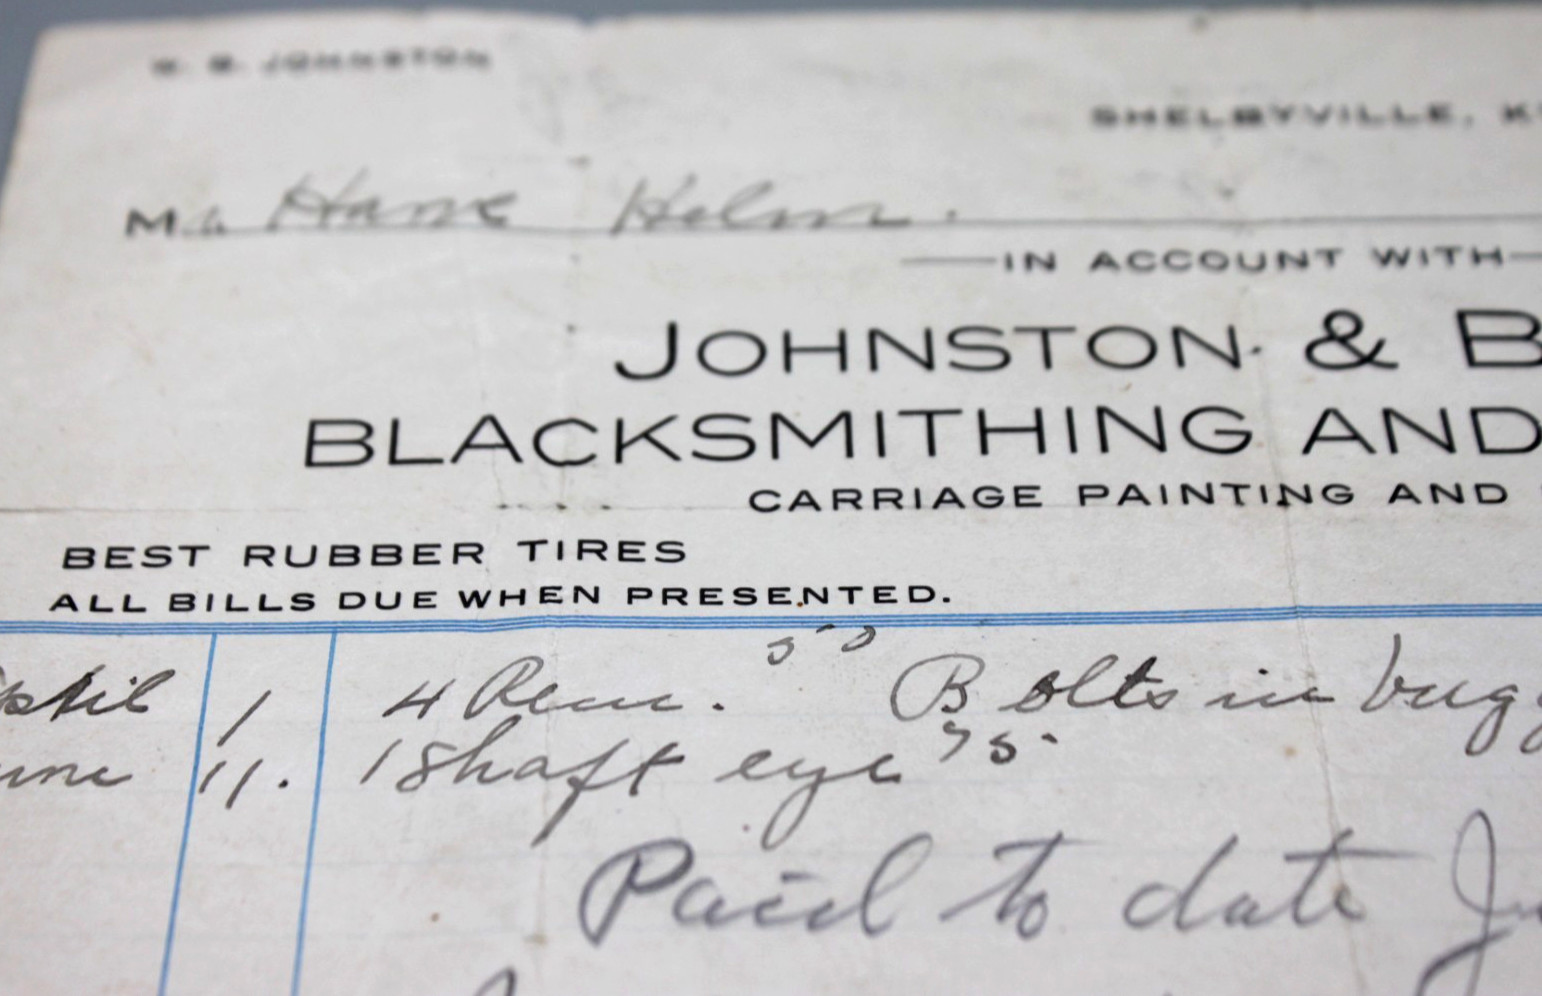 W. S. JOHNSTON
SHELBYVILLE, K
Mr Helm.
IN ACCOUNT WITH
JOHNSTON & B
BLACKSMITHING AND
CARRIAGE PAINTING AND
BEST RUBBER TIRES
ALL BILLS DUE WHEN PRESENTED.
50
1 4 Bolts in bugg
75.
une 11. 1 Shaft eye
Paid to date Ju